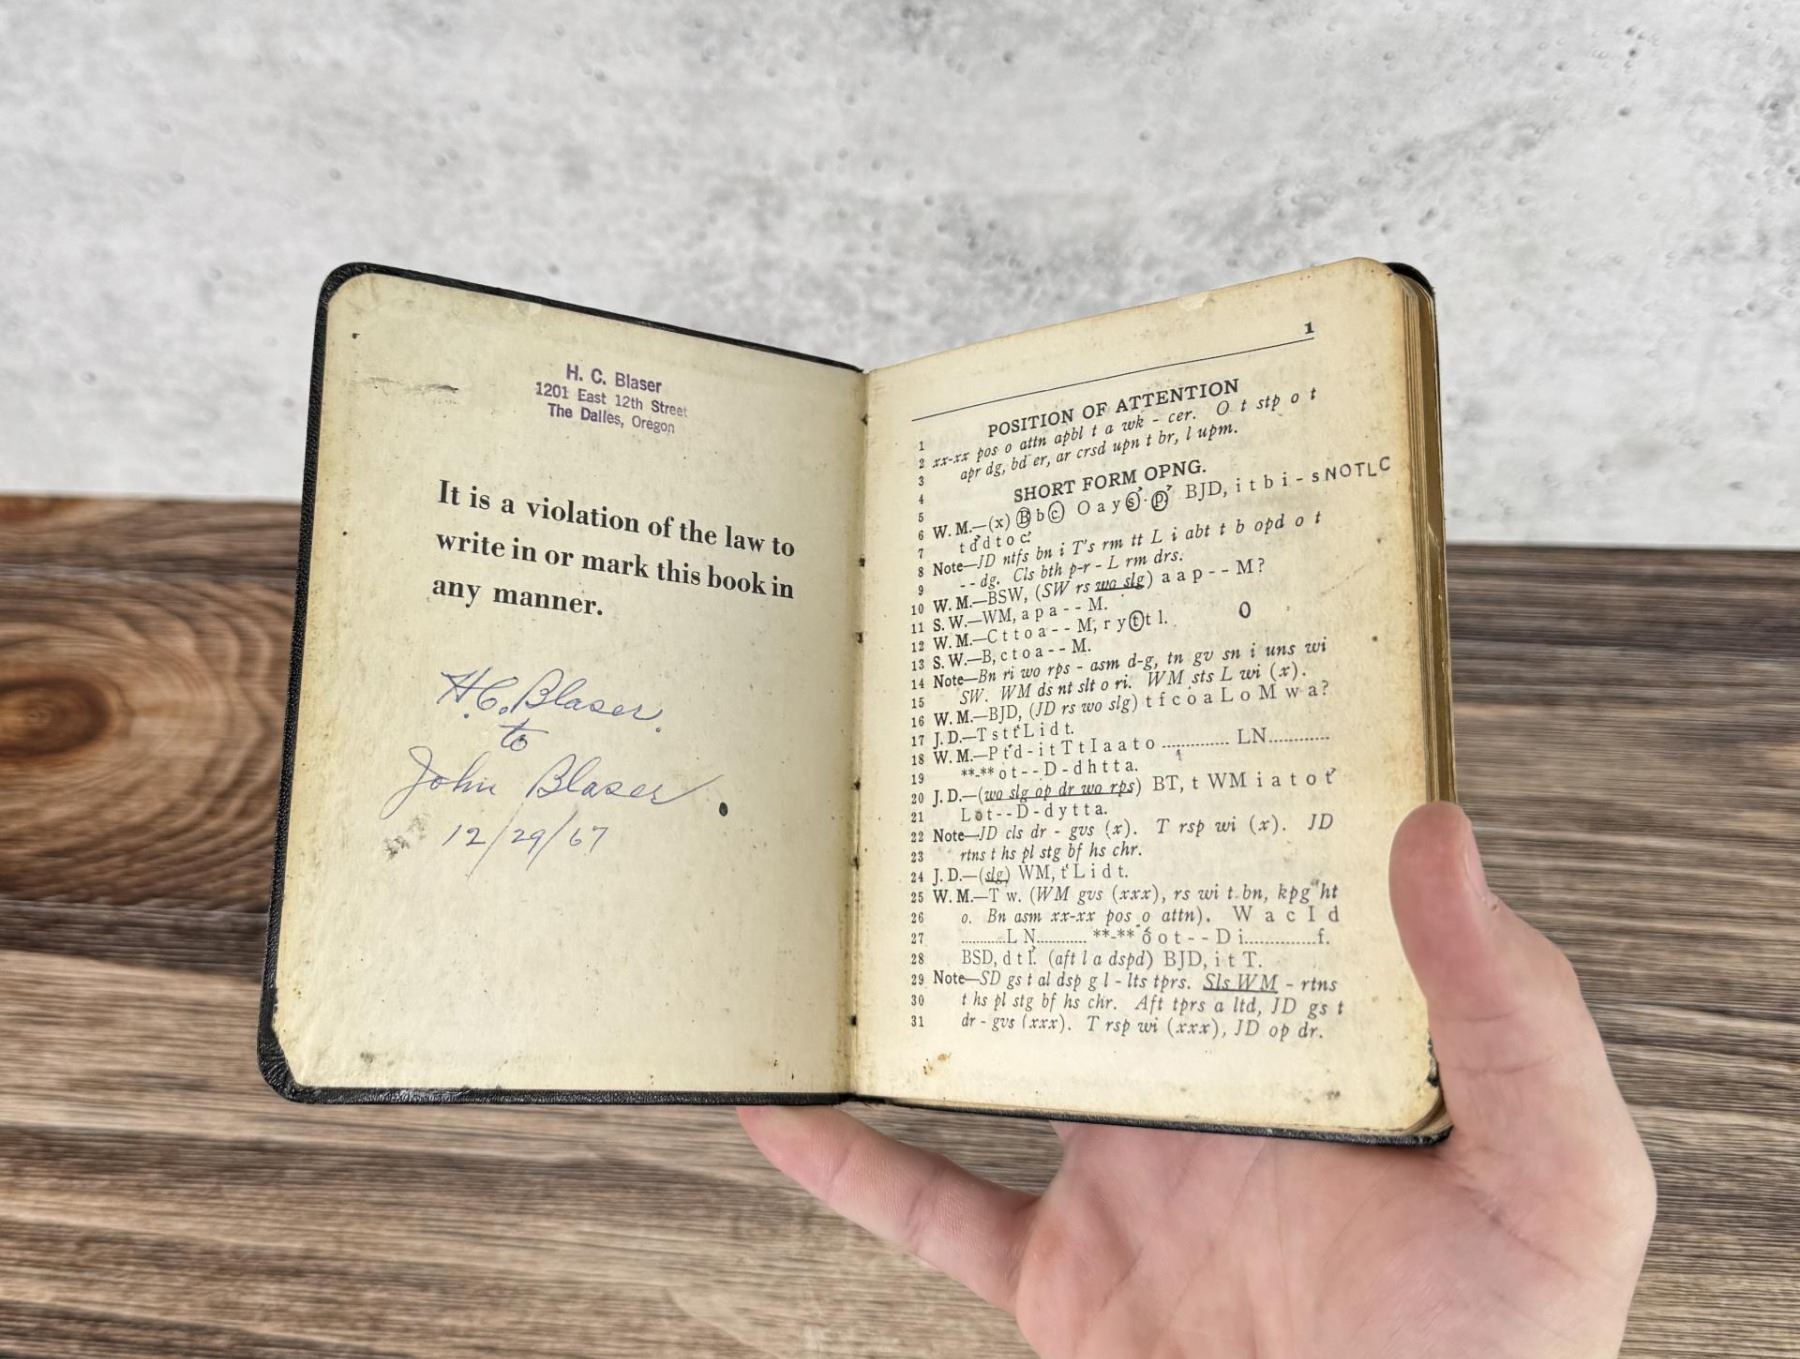 H. C. Blaser
1201 East 12th Street
The Dalles, Oregon
It is a violation of the law to
write in or mark this book in
any manner.
H.C. Blaser
to
John Blaser
12/29/67
1
POSITION OF ATTENTION
1
2 xx-xx pos o attn apbl t a wk - cer. O t stp o t
3 apr dg, bd er, ar crsd upn t br, l upm.
4 SHORT FORM OPNG.
5 W. M.—(x) B b c O a y s' p' BJD, i t b i - s NOTLC
6 t d d t o c.
7 Note—JD ntfs bn i T's rm tt L i abt t b opd o t
8 - - dg. Cls bth p-r - L rm drs.
9 W. M.—BSW, (SW rs wo slg) a a p - - M?
10 S. W.—WM, a p a - - M.
11 W. M.—C t t o a - - M, r y t t l. O
12 S. W.—B, c t o a - - M.
13 Note—Bn ri wo rps - asm d-g, tn gv sn i uns wi
14 SW. WM ds nt slt o ri. WM sts L wi (x).
15 W. M.—BJD, (JD rs wo slg) t f c o a L o M w a?
16 J. D.—T s t t L i d t.
17 W. M.—P t d - i t T t I a a t o ............ LN............
18 **-** o t - - D - d h t t a.
19 J. D.—(wo slg op dr wo rps) BT, t WM i a t o t
20 L o t - - D - d y t t a.
21 Note—JD cls dr - gvs (x). T rsp wi (x). JD
22 rtns t hs pl stg bf hs chr.
23 J. D.—(slg) WM, t L i d t.
24 W. M.—T w. (WM gvs (xxx), rs wi t bn, kpg ht
25 o. Bn asm xx-xx pos o attn). W a c I d
26 ............L N............ **-** o o t - - D i...............f.
27 BSD, d t l. (aft l a dspd) BJD, i t T.
28 Note—SD gs t al dsp g l - lts tprs. Sls WM - rtns
29 t hs pl stg bf hs chr. Aft tprs a ltd, JD gs t
30 dr - gvs (xxx). T rsp wi (xxx), JD op dr.
31